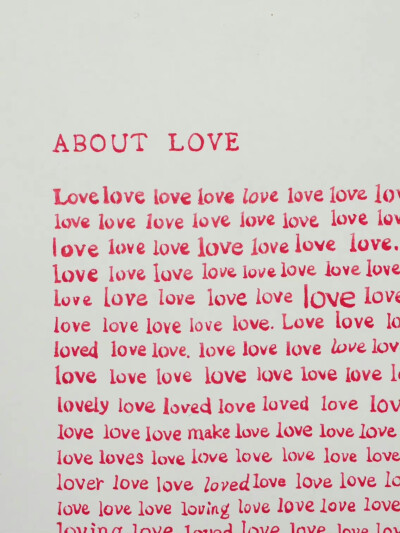 ABOUT LOVE
Love love love love love love love
love love love love love love love
love love love love love love love.
love love love love love love love love
love love love love love love love
love love love love love. Love love
loved love love. love love love love
love love love love love love love
lovely love loved love loved love
love love love make love love love love
love loves love love love love love love
lover love love loved love love love love
love love love loving love love love love
loving love loved love love love love